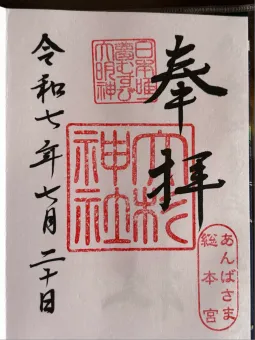 奉拝
日本唯一
大明神
大杉
神社
あんばさま
総本宮
令和七年七月二十日